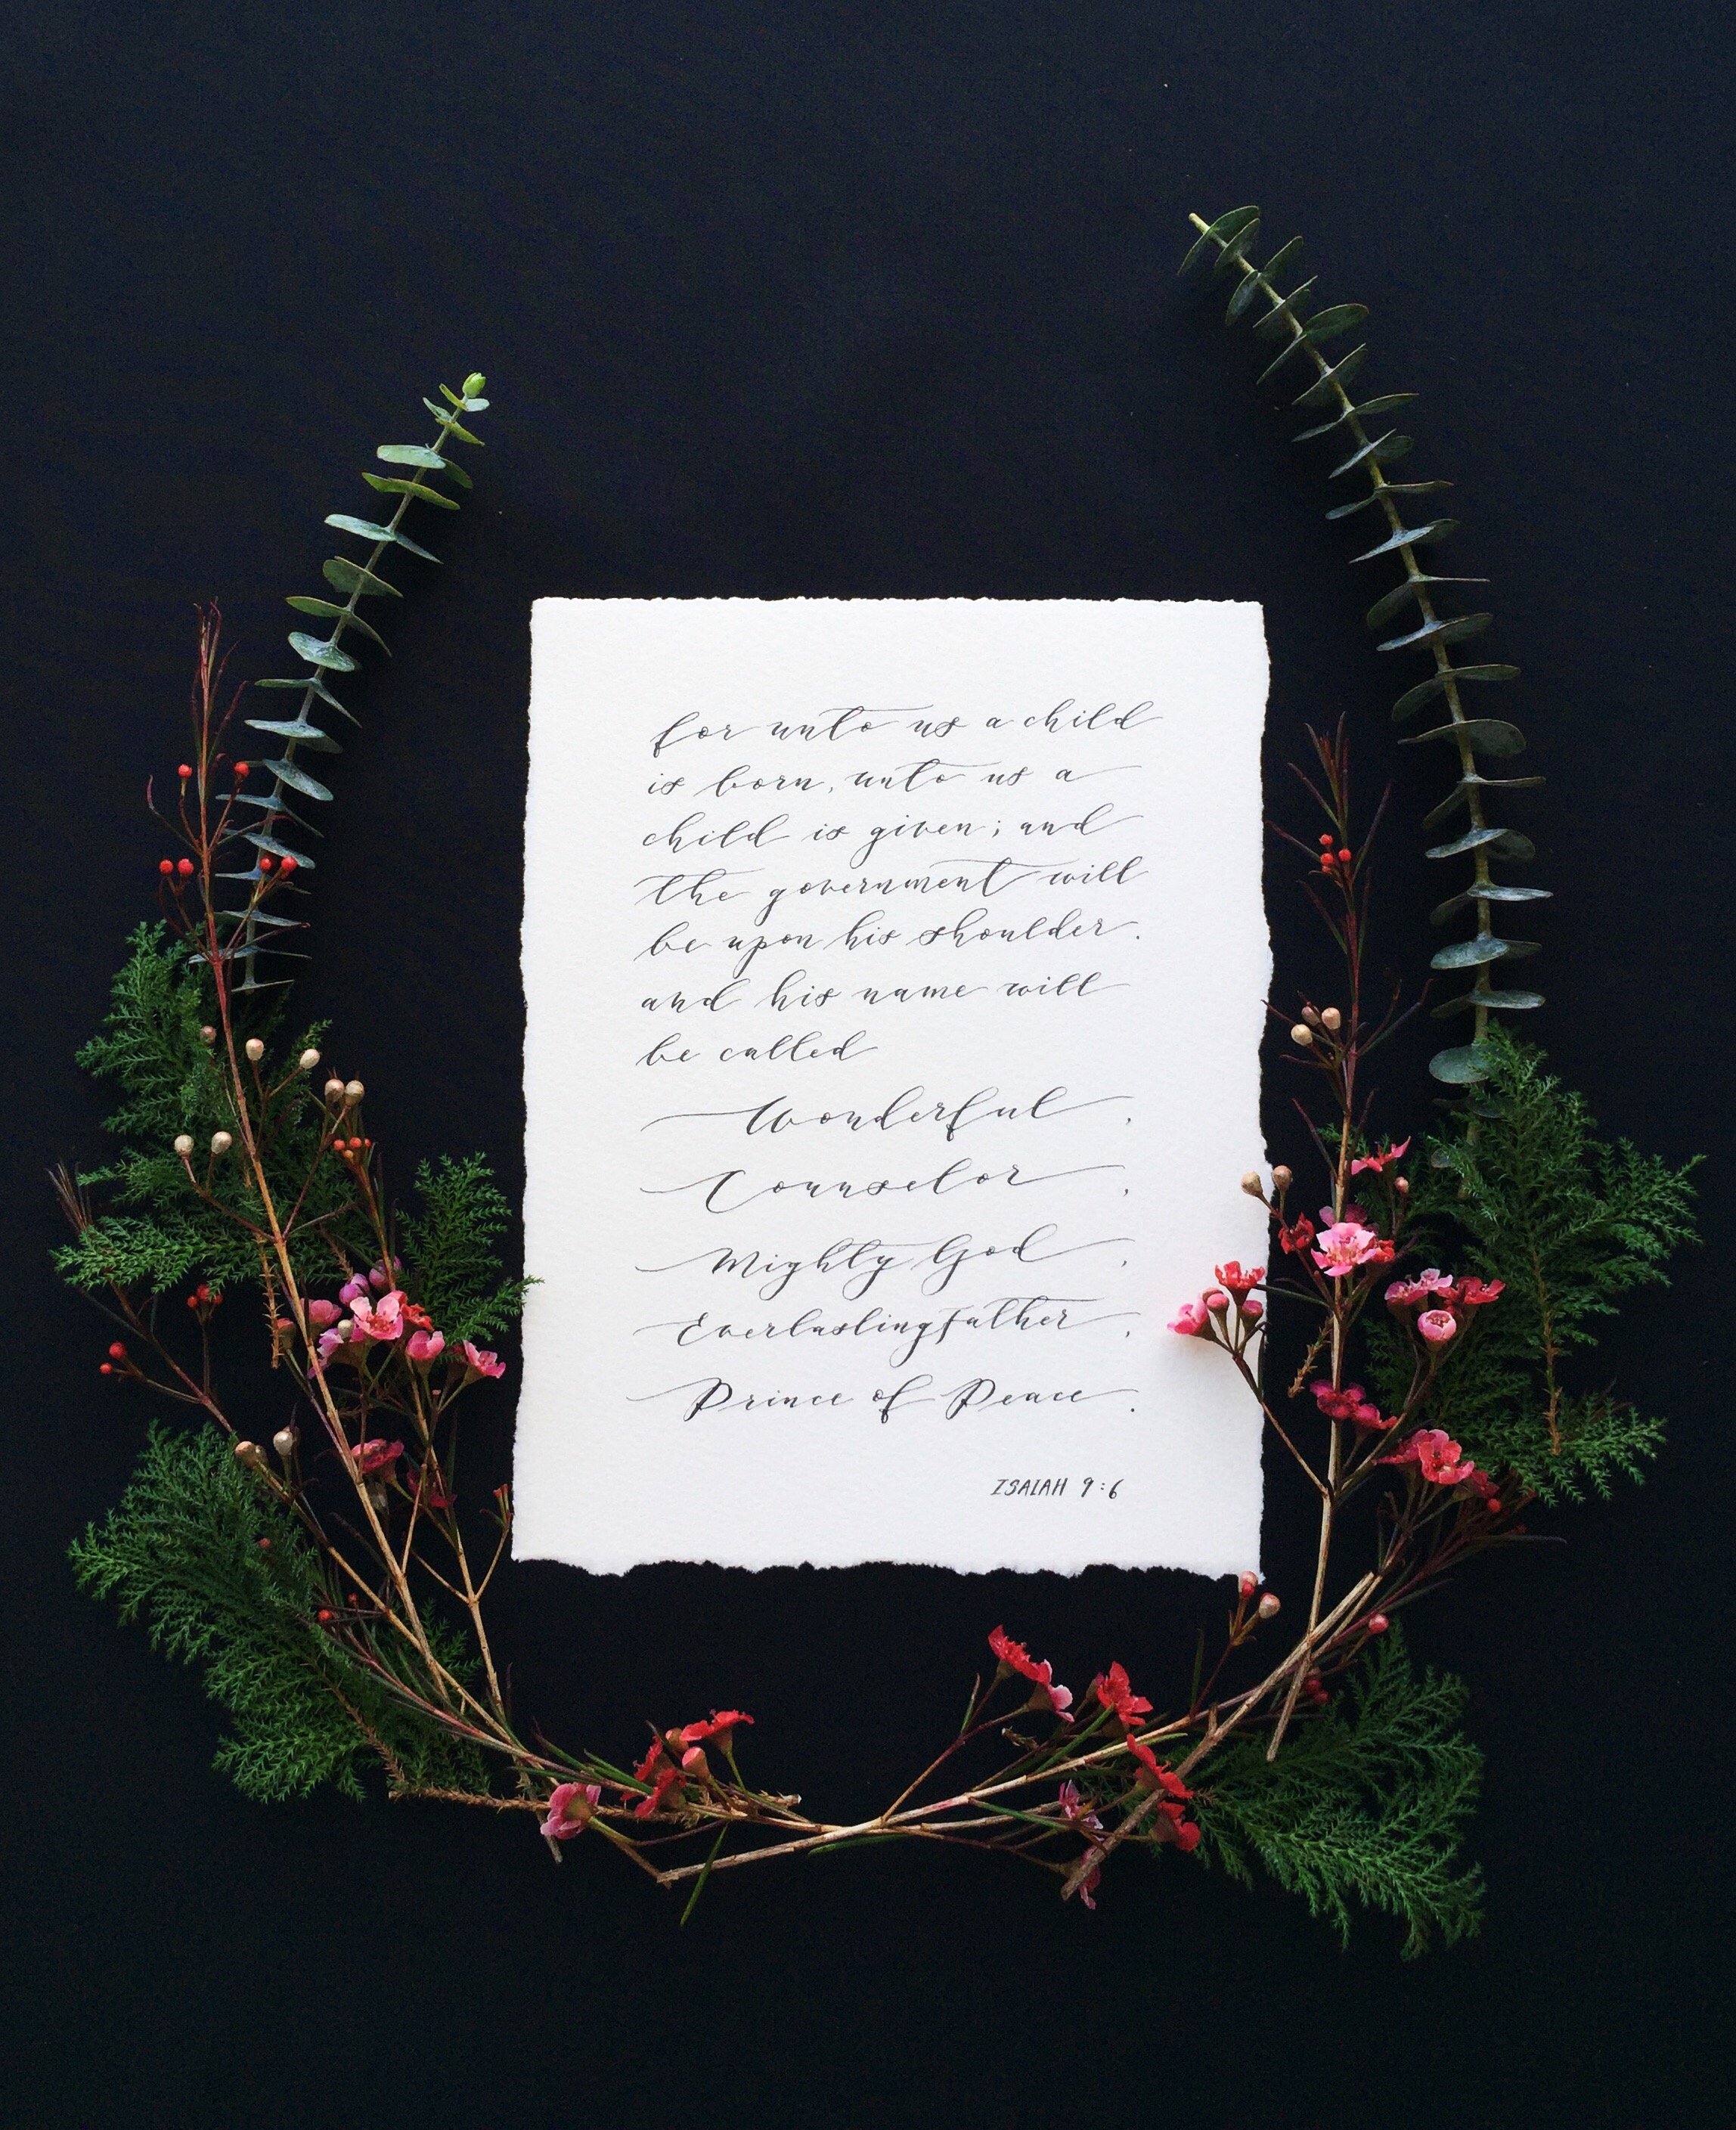 for unto us a child
is born, unto us a
child is given; and
the government will
be upon his shoulder.
and his name will
be called
Wonderful,
Counselor,
Mighty God,
Everlasting father,
Prince of Peace.
ISAIAH 9:6